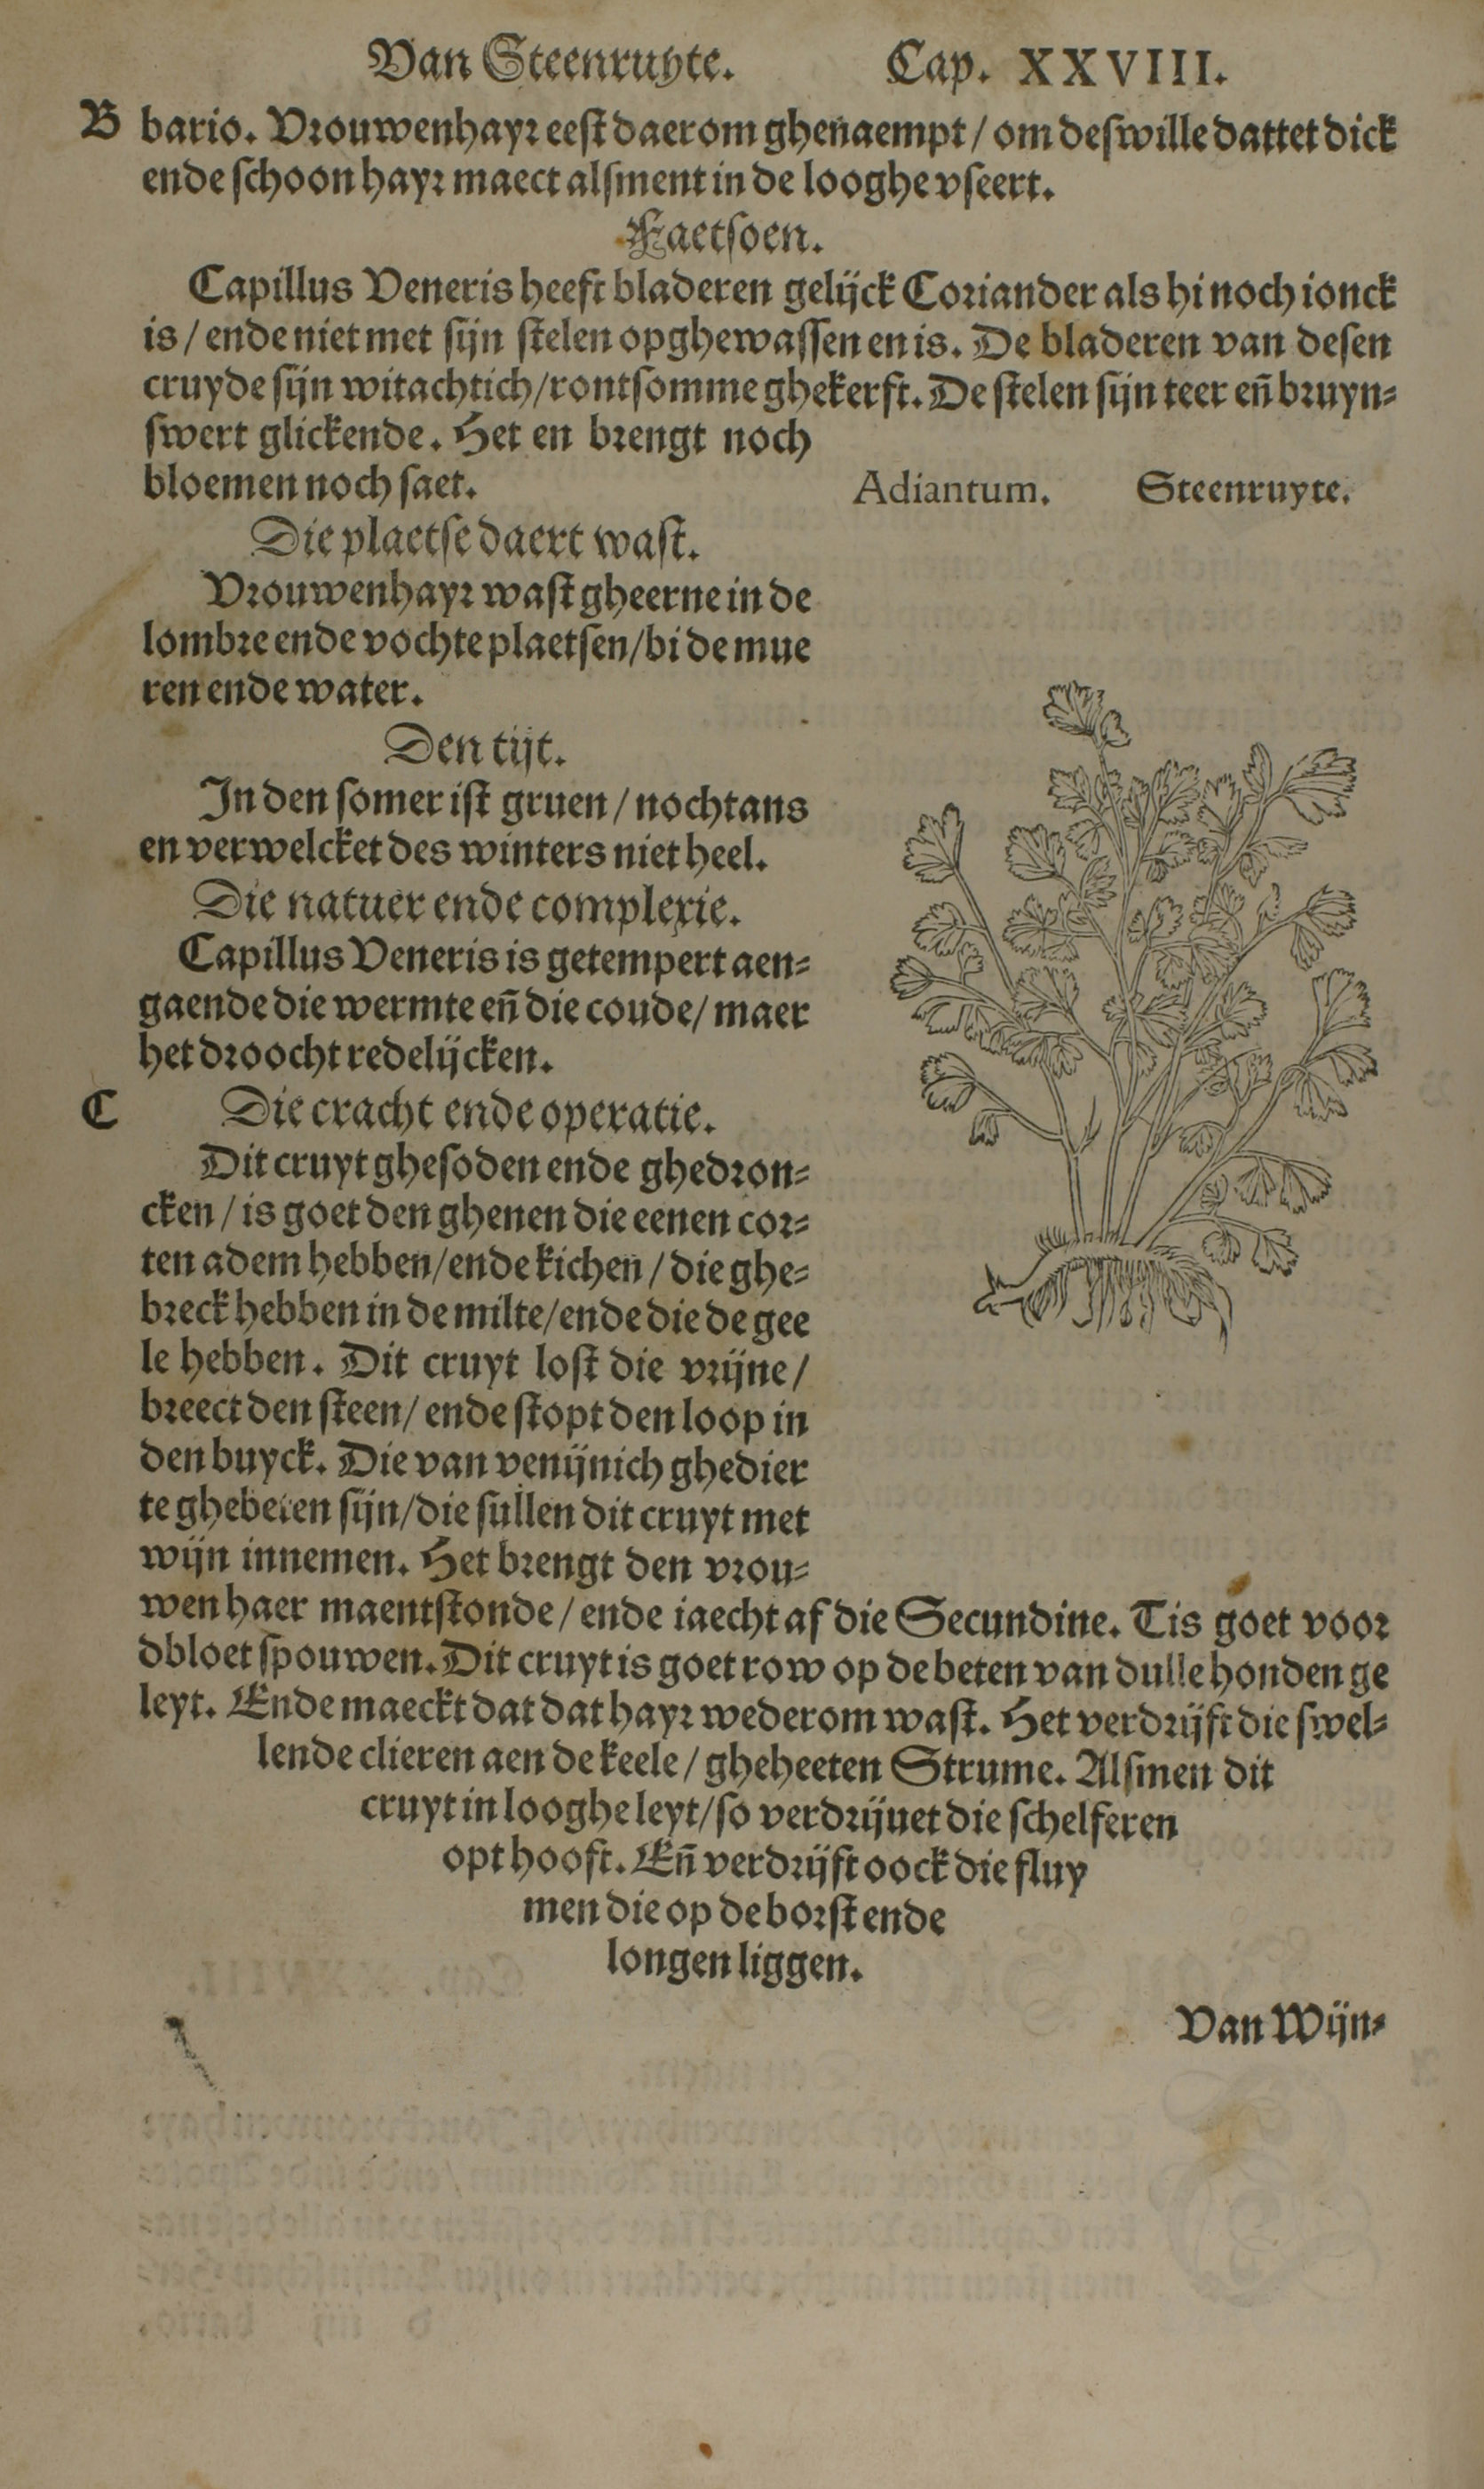 Van Steenruyte. Cap. XXVIII.
B bario. Vrouwenhayr eest daerom ghenaempt / om deswille dattet dick
ende schoon hayr maect alsment in de looghe vseert.
Faetsoen.
Capillus Veneris heeft bladeren gelijck Coriander als hi noch ionck
is / ende niet met sijn stelen opghewassen en is. De bladeren van desen
cruyde sijn witachtich/rontsomme ghekerft. De stelen sijn teer en̄ bruyn⸗
swert glickende. Het en brengt noch
bloemen noch saet.
Adiantum. Steenruyte.
Die plaetse daert wast.
Vrouwenhayr wast gheerne in de
lombre ende vochte plaetsen/bi de mue
ren ende water.
Den tijt.
In den somer ist gruen / nochtans
en verwelcket des winters niet heel.
Die natuer ende complexie.
Capillus Veneris is getempert aen⸗
gaende die wermte en̄ die coude/ maer
het droocht redelijcken.
C Die cracht ende operatie.
Dit cruyt ghesoden ende ghedron⸗
cken / is goet den ghenen die eenen cor⸗
ten adem hebben/ende kichen / die ghe⸗
breck hebben in de milte/ende die de gee
le hebben. Dit cruyt lost die vrijne /
breect den steen/ ende stopt den loop in
den buyck. Die van venijnich ghedier
te ghebeten sijn/die sullen dit cruyt met
wijn innemen. Het brengt den vrou⸗
wen haer maentstonde / ende iaecht af die Secundine. Tis goet voor
dbloet spouwen. Dit cruyt is goet row op de beten van dulle honden ge
leyt. Ende maeckt dat dat hayr wederom wast. Het verdrijft die swel⸗
lende clieren aen de keele / gheheeten Strume. Alsmen dit
cruyt in looghe leyt/so verdrijuet die schelferen
opt hooft. En̄ verdrijft oock die fluy
men die op de borst ende
longen liggen.
Van Wijn⸗